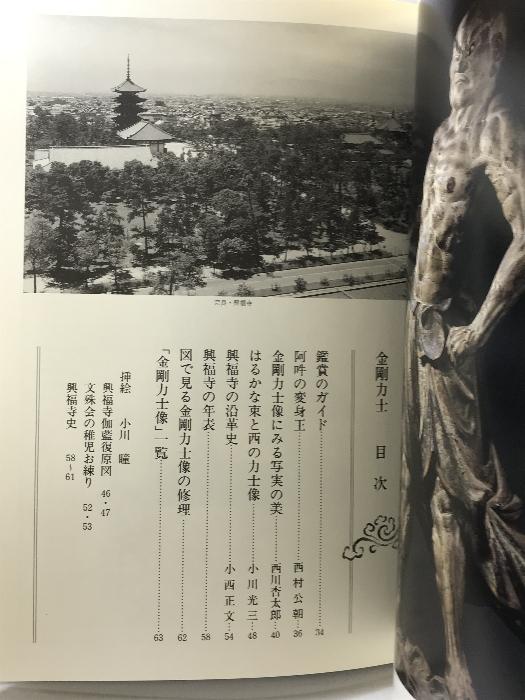 奈良・興福寺
金剛力士　目次
鑑賞のガイド……34
阿吽の変身王……西村公朝…36
金剛力士像にみる写実の美……西川杏太郎…40
はるかな東と西の力士像……小川光三…48
興福寺の沿革史……小西正文…54
興福寺の年表……58
図で見る金剛力士像の修理……62
「金剛力士像」一覧……63
挿絵　小川　瞳
興福寺伽藍復原図　46・47
文殊会の稚児お練り　52・53
興福寺史　58〜61